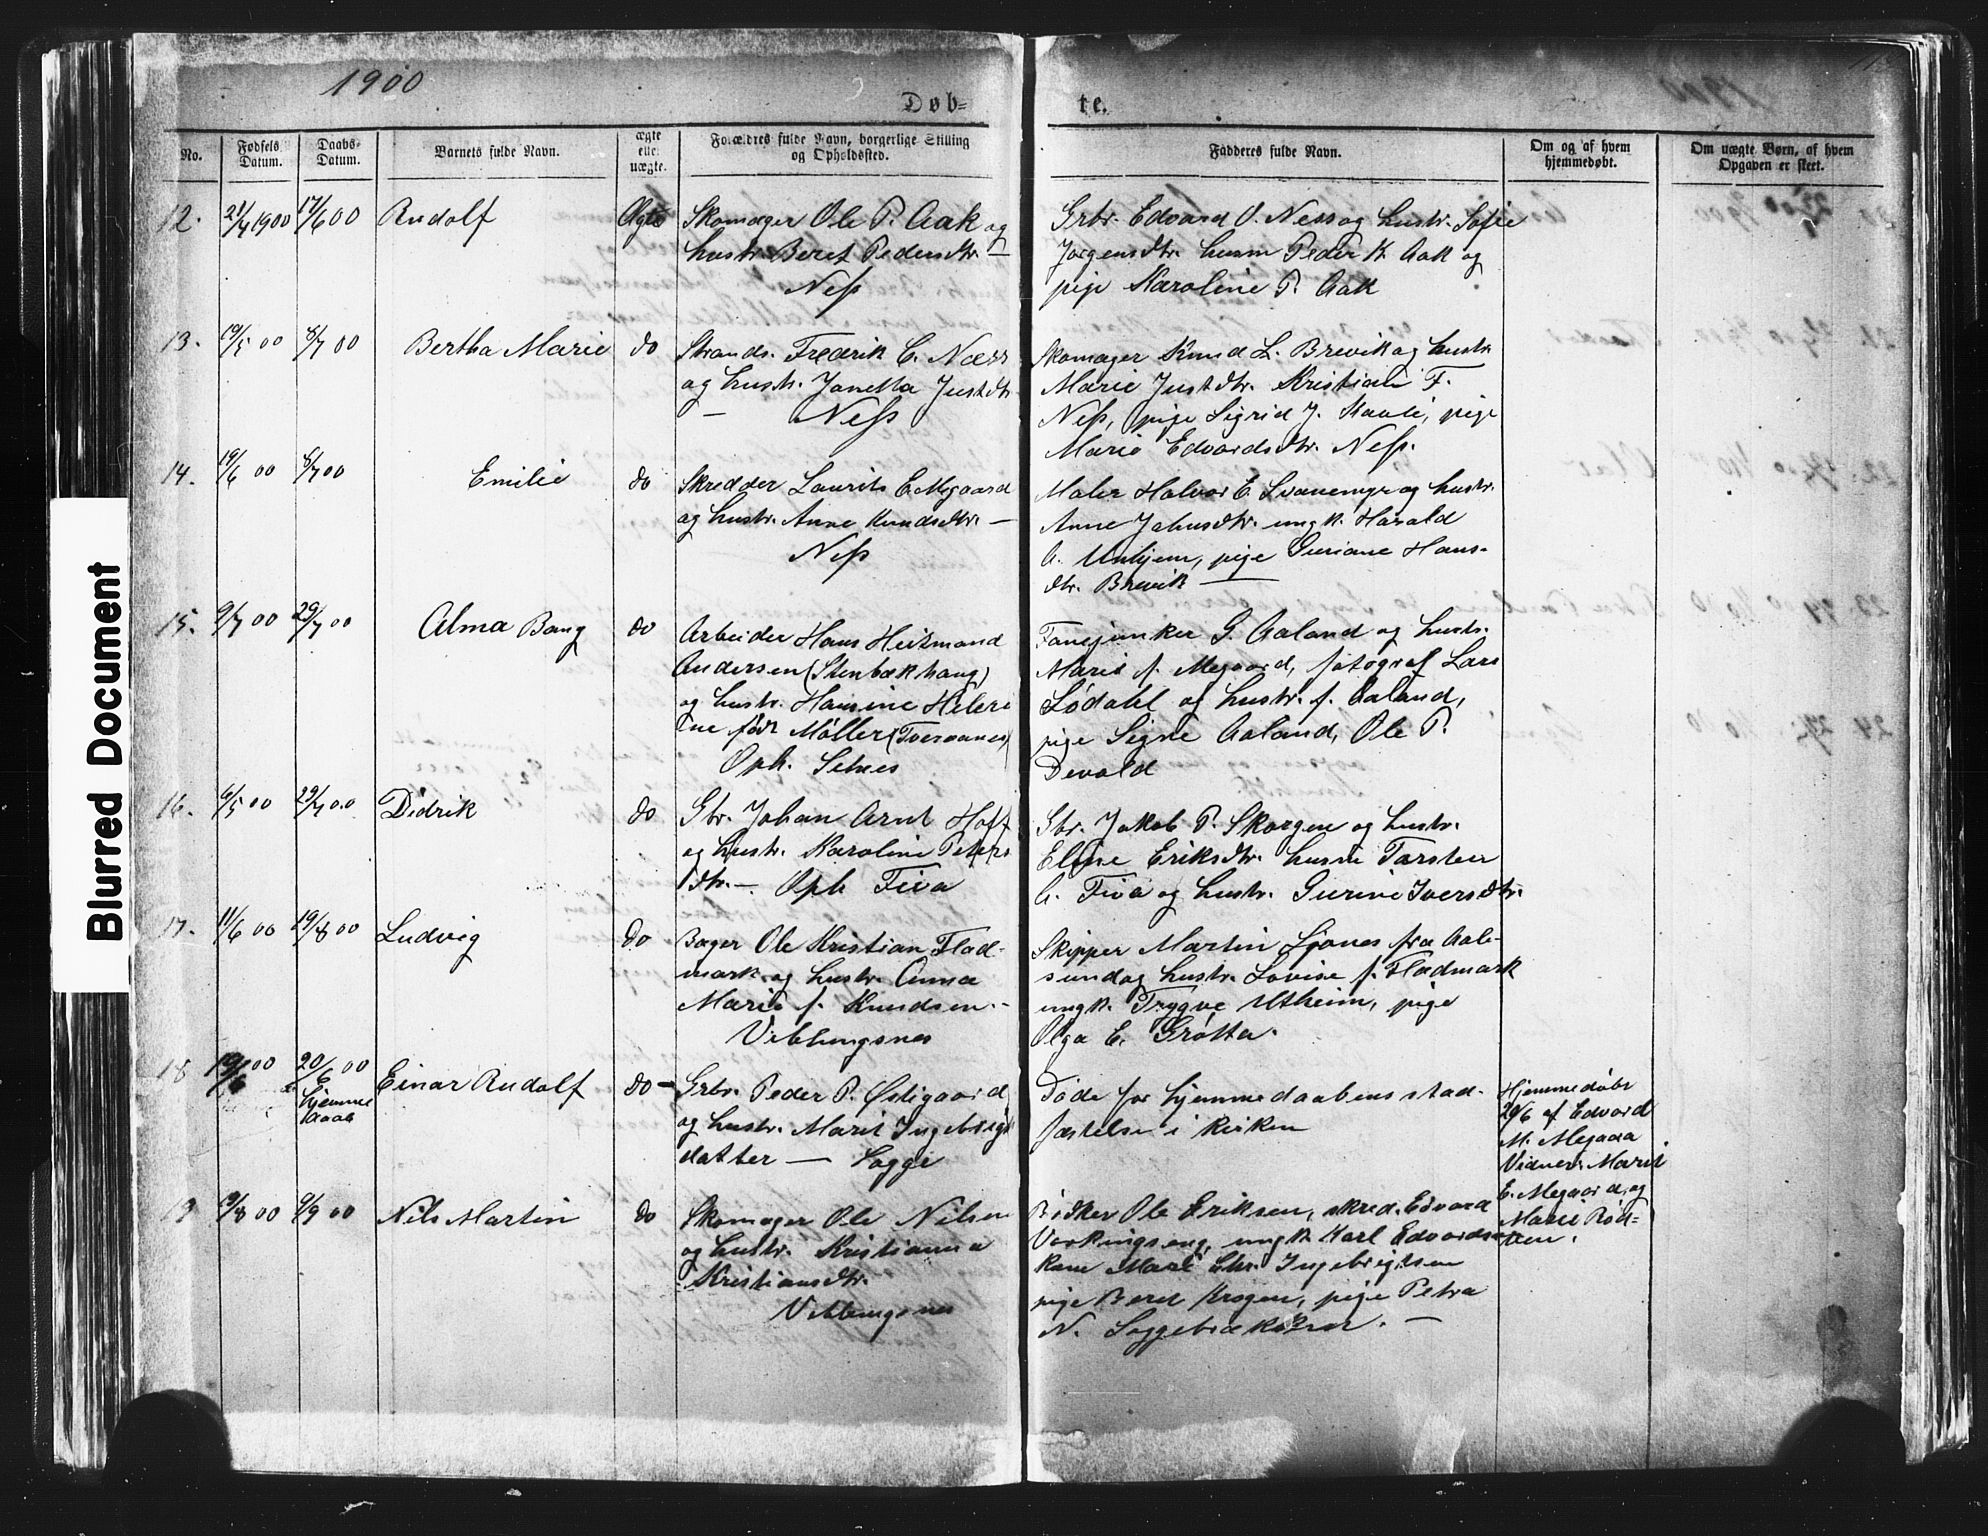 1900
Døb-
te.
No.
Fødsels
Datum.
Daabs-
Datum.
Barnets fulde Navn.
ægte
eller
uægte.
Forældres fulde Navn, borgerlige Stilling
og Opholdssted.
Fadderes fulde Navn.
Om og af hvem
hjemmedøbt.
Om uægte Børn, af hvem
Opgaven er skeet.
Blurred Document
12.
21/4 1900
17/6 00
Rudolf
Ægte
Skomager Ole P. Aak og
hustr. Beret Pedersdtr. —
Ness
Grbr. Edvard O. Ness og hustr. Sofie
Jørgensdtr. husm Peder K. Aak og
pige Karoline P. Aak
13.
19/5 00
8/7 00
Bertha Marie
do
Strands. Fredrik C. Næss
og hustr. Janetta Justdtr
— Ness
Skomager Knud L. Brevik og hustr.
Marie Justdtr. Kristian F.
Ness, pige Sigrid J. pige
Marie Edvardsdtr. Ness.
14.
19/6 00
8/7 00
Emilie
do
Skredder Laurits E. Megaard
og hustr. Anne Knudsdtr. —
Ness
Maler Halvor E. Svanemyr og hustr.
Anne Johnsdtr. ungk. Harald
A. Unhjem, pige Guriane Hans-
dtr. Brevik —
15.
9/7 00
29/7 00
Alma Bang
do
Arbeider Hans Heitmand
Andersen (Stenbækhaug)
og hustr. Hansine Helen
ene født Møller (Tveraanes)
Oph. Setnes
Fanejunker G. Aaland og hustr.
Marie f. Megaard, fotograf Lars
Sødahl og hustr. f. Aaland,
pige Signe Aaland, Ole P.
Devold
16.
6/5 00
29/7 00
Didrik
do
Gbr. Johan Arnt Hoff
og hustr. Karoline Peters
dtr. — Oph Fiva
Gbr. Jakob P. Skorgen og hustr.
Eline Eriksdtr. husm Torsten
A. Fiva og hustr. Gurine Iversdtr.
17.
11/6 00
19/8 00
Ludvig
do
Bager Ole Kristian Flad-
mark og hustr. Anna
Marie f. Knudsen. -
Veblungsnes
Skipper Martin Sjones fra Aale-
sund og hustr. Lovise f. Fladmark
ungk. Trygve Utheim, pige
Olga E. Grøtta.
18
19/6 00
20/6 00
Hjemme
daab
Einar Rudolf
do —
Grbr. Peder P. Østigaard
og hustr. Marit Ingebrigts
datter — Sogge
Døde før hjemmedaabens stad-
fæstelse i kirken
Hjemmedøbt
20/6 af Edvard
M. Megaard
Vidner: Marit
E. Megaard og
Marie Rød-
ven.
19
19/8 00
9/9 00
Nils Martin
do
Skomager Ole Nilsen
og hustr. Kristianna
Kristiansdtr.
Veblungsnes
Bødker Ole Eriksen, skred. Edvard
Vorkingseng, ungk. Karl Edvardsen
kone Mari Chr. Ingebrigtsen
pige Beret Krogen, pige Petra
N. Soggebakken. —